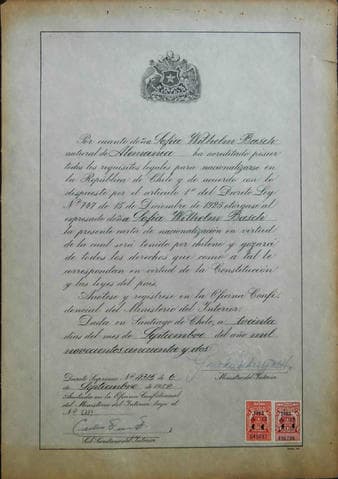 Por cuanto doña Sofía Wilhelm Basch
natural de Alemania ha acreditado poseer
todos los requisitos legales para nacionalizarse en
la República de Chile y de acuerdo con lo
dispuesto por el artículo 1º del Decreto Ley
Nº 747 de 15 de Diciembre de 1925 otórgase al
expresado doña Sofía Wilhelm Basch
la presente carta de nacionalización en virtud
de la cual será tenido por chileno y gozará
de todos los derechos que como a tal le
correspondan en virtud de la Constitución
y las leyes del país.
Anótese y regístrese en la Oficina Confi-
dencial del Ministerio del Interior.
Dada en Santiago de Chile, a treinta
días del mes de Septiembre del año mil
novecientos cincuenta y dos
Decreto Supremo Nº de 6
de Septiembre de 1952
Ministro del Interior
Anotada en la Oficina Confidencial
del Ministerio del Interior bajo el
Nº
Sub-Secretario del Interior